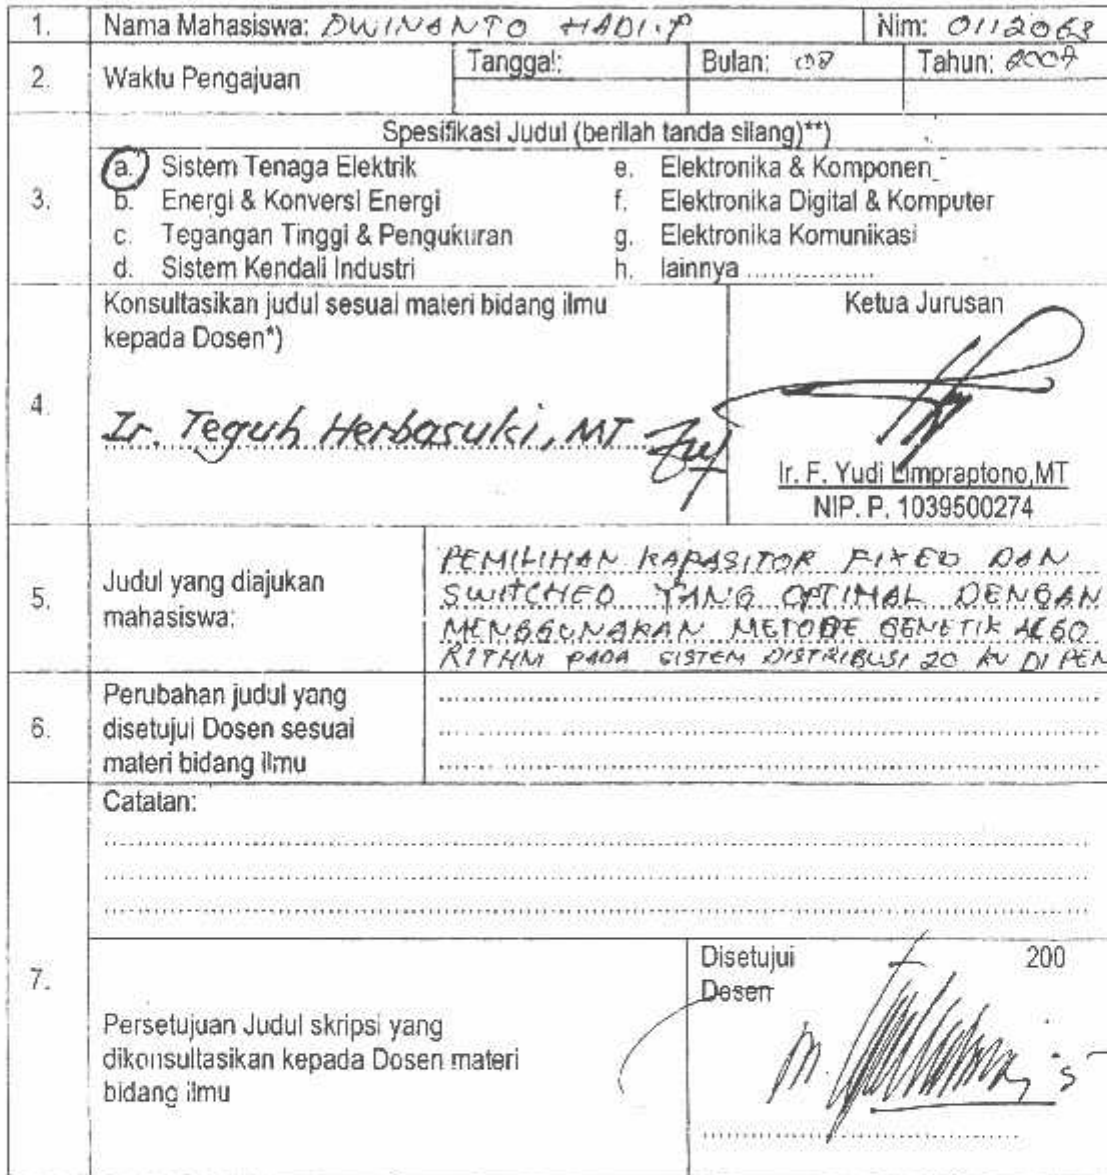 1. Nama Mahasiswa: DWINANTO HADI.P Nim: 0112068
2. Waktu Pengajuan Tanggal: Bulan: 08 Tahun: 2007
Spesifikasi Judul (berilah tanda silang)**)
3.
a. Sistem Tenaga Elektrik
b. Energi & Konversi Energi
c. Tegangan Tinggi & Pengukuran
d. Sistem Kendali Industri
e. Elektronika & Komponen
f. Elektronika Digital & Komputer
g. Elektronika Komunikasi
h. lainnya ..................
4.
Konsultasikan judul sesuai materi bidang ilmu
kepada Dosen*)
Ir. Teguh Herbasuki, MT
Ketua Jurusan
Ir. F. Yudi Limpraptono,MT
NIP. P. 1039500274
5.
Judul yang diajukan
mahasiswa:
PEMILIHAN KAPASITOR FIXED DAN
SWITCHED YANG OPTIMAL DENGAN
MENGGUNAKAN METODE GENETIK ALGO
RITHM PADA SISTEM DISTRIBUSI 20 KV DI PEN
6.
Perubahan judul yang
disetujui Dosen sesuai
materi bidang ilmu
Catatan:
7.
Persetujuan Judul skripsi yang
dikonsultasikan kepada Dosen materi
bidang ilmu
Disetujui 200
Dosen